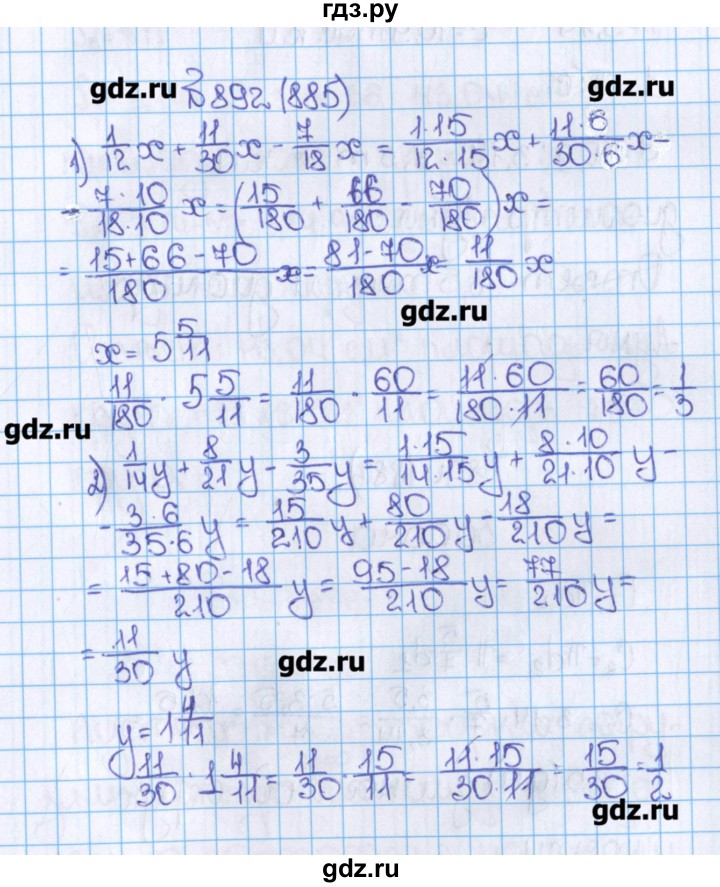 гдз.ру
gdz.ru
gdz.ru
№ 892 (885)
1) 1/12 x + 11/30 x - 7/18 x = 1·15/12·15 x + 11·6/30·6 x -
- 7·10/18·10 x = (15/180 + 66/180 - 70/180) x =
= 15+66-70/180 x = 81-70/180 x = 11/180 x
gdz.ru
x = 5 5/11
11/180 · 5 5/11 = 11/180 · 60/11 = 11·60/180·11 = 60/180 = 1/3
gdz.ru
2) 1/14 y + 8/21 y - 3/35 y = 1·15/14·15 y + 8·10/21·10 y -
- 3·6/35·6 y = 15/210 y + 80/210 y - 18/210 y =
= 15+80-18/210 y = 95-18/210 y = 77/210 y =
= 11/30 y
gdz.ru
y = 1 4/11
11/30 · 1 4/11 = 11/30 · 15/11 = 11·15/30·11 = 15/30 = 1/2
gdz.ru
gdz.ru